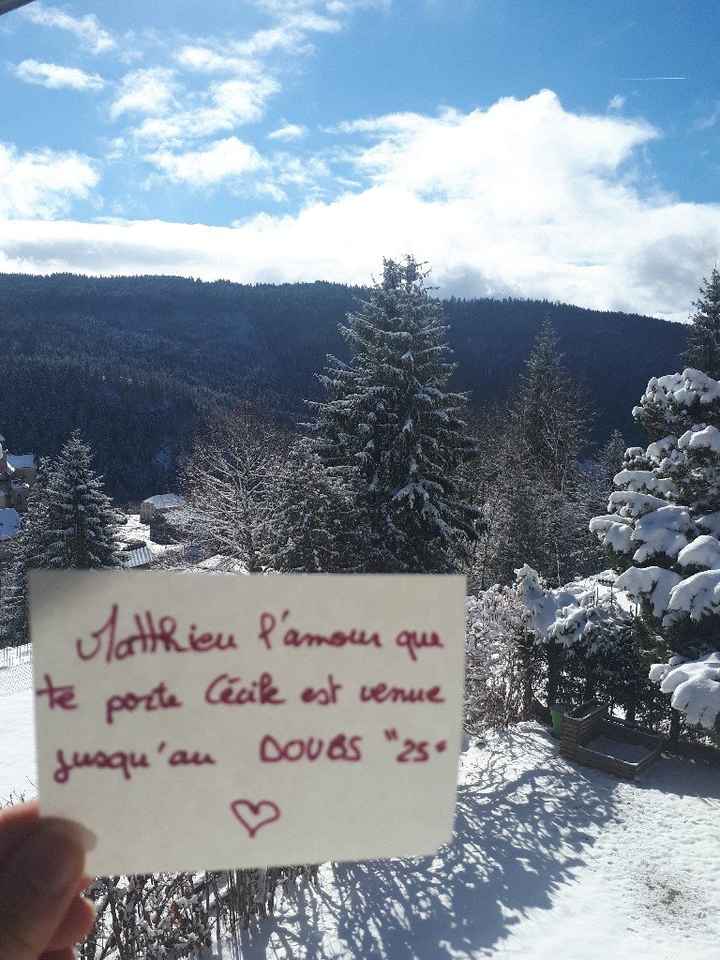 Matthieu l'amour que
te porte Cécile est venue
jusqu'au DOUBS "25"